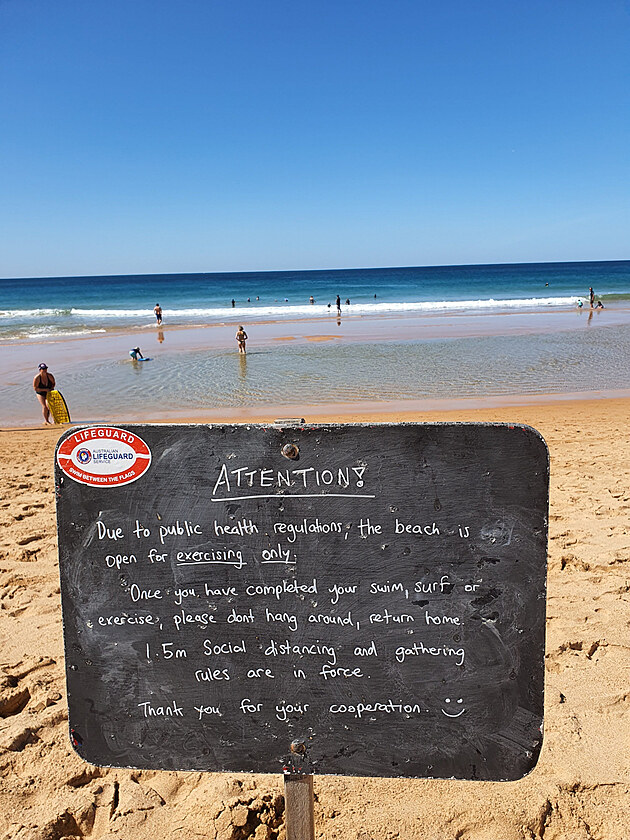 LIFEGUARD
AUSTRALIAN
LIFEGUARD
SERVICE
SWIM BETWEEN THE FLAGS
ATTENTION!
Due to public health regulations, the beach is
open for exercising only.
Once you have completed your swim, surf or
exercise, please dont hang around, return home.
1.5m Social distancing and gathering
rules are in force.
Thank you for your cooperation